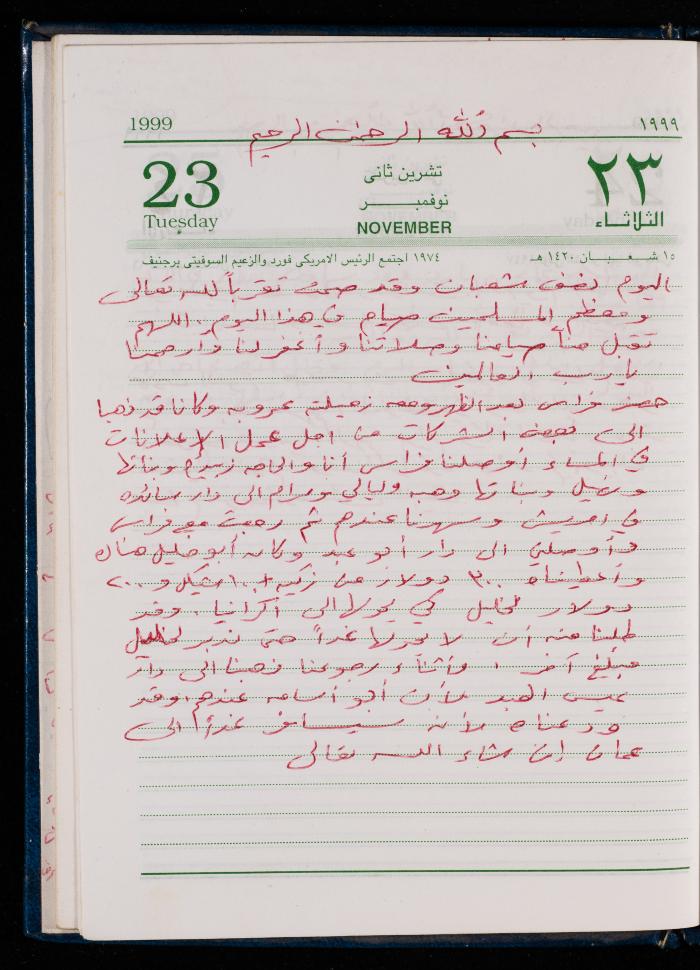 1999 بسم الله الرحمن الرحيم ١٩٩٩
23 تشرين ثانى ٢٣
Tuesday نوفمبر الثلاثاء
NOVEMBER
١٥ شعبان ١٤٢٠ هـ ١٩٧٤ اجتمع الرئيس الامريكى فورد والزعيم السوفيتى برجنيف
اليوم نصف شعبان وقد صمت تقرباً لله تعالى
ومعظم المسلمين صيام في هذا اليوم. اللهم
تقبل منا صيامنا وصلاتنا وأغفر لنا وارحمنا
يا رب العالمين
حضر فراس بعد الظهر ومعه زميلته عروبه وكانا قد ذهبا
الى بعض الشركات من اجل عمل الإعلانات
في المساء أوصلنا فراس أنا والحاجه وبناتها
وبناتها وهبه وليالي ومرام الى دار
في وسهرنا عندهم ثم رجعت مع فراس
وأوصلني الى دار أبو عبد وكان أبو خليل هناك
وأعطيناه ٣٠٠ دولار من زكيه + ١٠٠ شيكل و ٢٠٠
دولار لخليل كي يحولها الى أكرانيا. وقد
طلبنا منه أن لا يحولها غداً حتى ندبر لخليل
مبلغ آخر. وأثناء رجوعنا ذهبنا الى دار
عيسى العبد لأن أبو أسامه عندهم وقد
ودعناه لأنه سيسافر غداً الى
عمان إن شاء الله تعالى